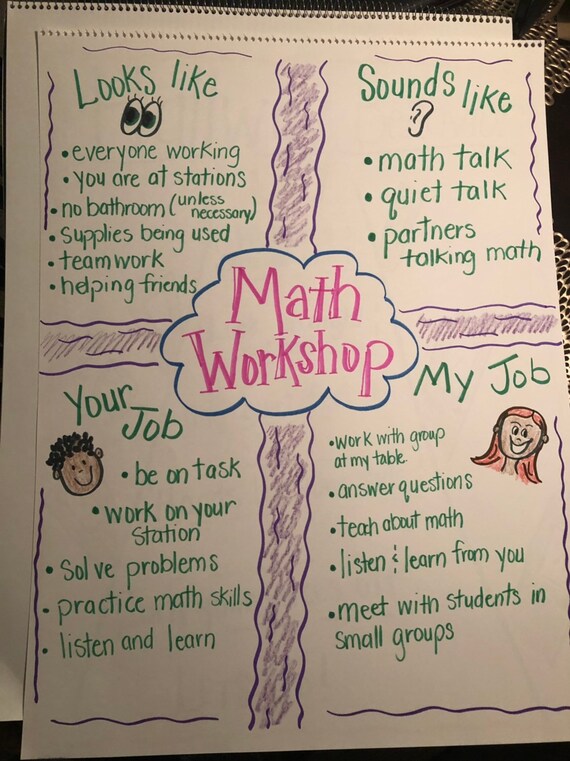 Looks like
• everyone working
• you are at stations
• no bathroom (unless
necessary)
• supplies being used
• teamwork
• helping friends
Sounds like
• math talk
• quiet talk
• partners
talking math
Math
Workshop
Your
Job
• be on task
• work on your
station
• solve problems
• practice math skills
• listen and learn
My Job
• work with group
at my table.
• answer questions
• teach about math
• listen & learn from you
• meet with students in
small groups